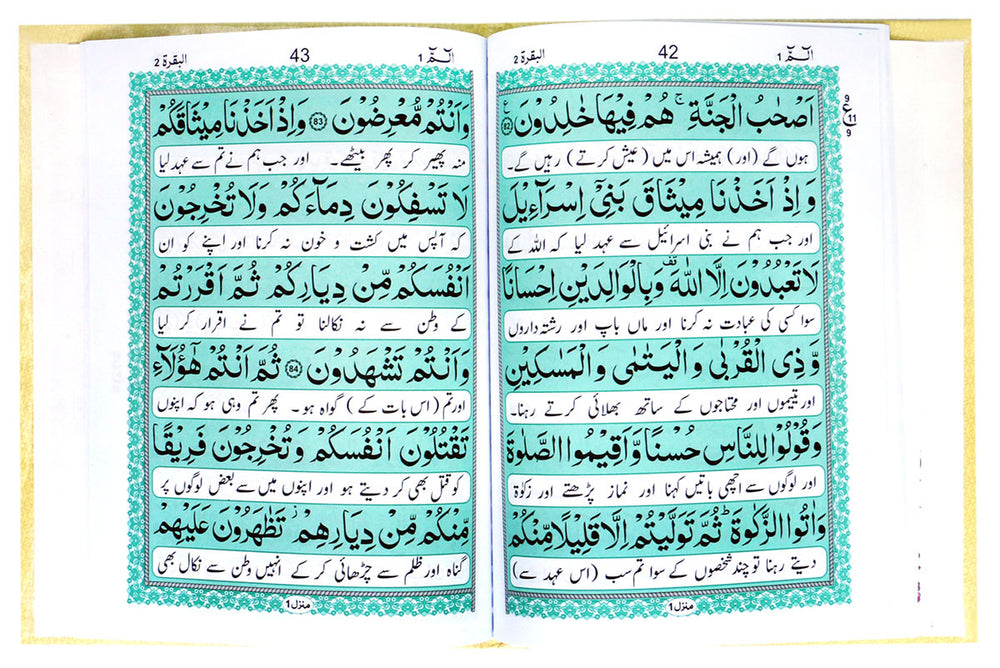 الٓمّٓ 1
42
البقرة 2
اَصْحٰبُ الْجَنَّةِ ۚ هُمْ فِيْهَا خٰلِدُوْنَ 82
ع
9
11
9
ہوں گے (اور) ہمیشہ اس میں (عیش کرتے) رہیں گے۔
وَ اِذْ اَخَذْنَا مِيْثَاقَ بَنِيْٓ اِسْرَآءِيْلَ
اور جب ہم نے بنی اسرائیل سے عہد لیا کہ اللہ کے
لَا تَعْبُدُوْنَ اِلَّا اللّٰهَ ۫ وَ بِالْوَالِدَيْنِ اِحْسَانًا
سوا کسی کی عبادت نہ کرنا اور ماں باپ اور رشتہ داروں
وَّ ذِي الْقُرْبٰى وَ الْيَتٰمٰى وَ الْمَسٰكِيْنِ
اور یتیموں اور محتاجوں کے ساتھ بھلائی کرتے رہنا۔
وَ قُوْلُوْا لِلنَّاسِ حُسْنًا وَّ اَقِيْمُوا الصَّلٰوةَ
اور لوگوں سے اچھی باتیں کہنا اور نماز پڑھتے اور زکوٰۃ
وَ اٰتُوا الزَّكٰوةَ ؕ ثُمَّ تَوَلَّيْتُمْ اِلَّا قَلِيْلًا مِّنْكُمْ
دیتے رہنا تو چند شخصوں کے سوا تم سب (اس عہد سے)
منزل 1
الٓمّٓ 1
43
البقرة 2
وَ اَنْتُمْ مُّعْرِضُوْنَ 83 وَ اِذْ اَخَذْنَا مِيْثَاقَكُمْ
منہ پھیر کر پھر بیٹھے۔ اور جب ہم نے تم سے عہد لیا
لَا تَسْفِكُوْنَ دِمَآءَكُمْ وَ لَا تُخْرِجُوْنَ
کہ آپس میں کشت و خون نہ کرنا اور اپنے کو ان
اَنْفُسَكُمْ مِّنْ دِيَارِكُمْ ثُمَّ اَقْرَرْتُمْ
کے وطن سے نہ نکالنا تو تم نے اقرار کر لیا
وَ اَنْتُمْ تَشْهَدُوْنَ 84 ثُمَّ اَنْتُمْ هٰٓؤُلَآءِ
اور تم (اس بات کے) گواہ ہو۔ پھر تم وہی ہو کہ اپنوں
تَقْتُلُوْنَ اَنْفُسَكُمْ وَ تُخْرِجُوْنَ فَرِيْقًا
کو قتل بھی کر دیتے ہو اور اپنوں میں سے بعض لوگوں پر
مِّنْكُمْ مِّنْ دِيَارِهِمْ ؗ تَظٰهَرُوْنَ عَلَيْهِمْ
گناہ اور ظلم سے چڑھائی کر کے انہیں وطن سے نکال بھی
منزل 1